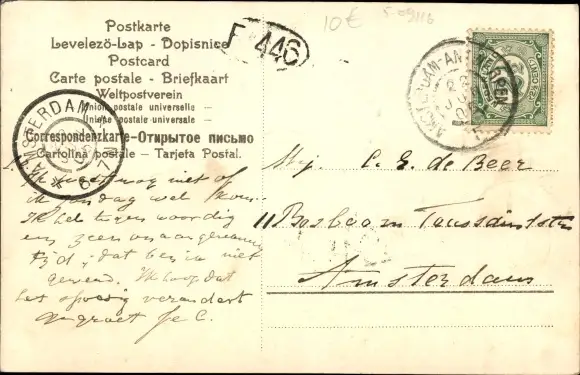 Postkarte
Levelezö-Lap - Dopisnice
Postcard
Carte postale - Briefkaart
Weltpostverein
Union postale universelle —
Unione postale universale —
Correspondenzkarte-Открытое письмо
Cartolina postale — Tarjeta Postal.
F 446
10€
AMSTERDAM
AMSTERDAM-ANTWERPEN
C. E. de Beer
11 Bosboom Toussaintstr
Amsterdam
niet of
ik zondag wel
Ik heb tegenwoordig
een zeer onaangename
tijd, dat ben ik niet
gewend. Ik hoop dat
het spoedig verandert
gegroet je C.